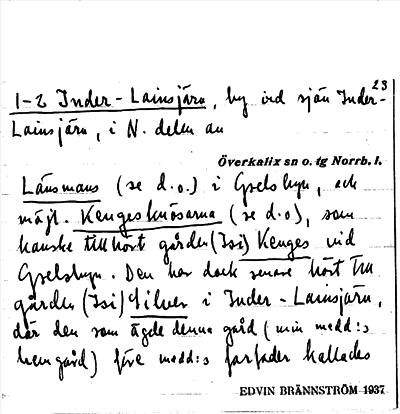 23
1-2 Inder-Lainsjärv, by vid sjön Inder-
Lainsjärv, i N. delen av
Överkalix sn o. tg Norrb. l.
Länsmans (se d.o.) i Grelsbyn, och
möjl. Kengesknösarna (se d.o), som
kanske tillhört gården (Isi) Kenges vid
Grelsbyn. Den har dock senare hört till
gården (Isi) Silver i Inder-Lainsjärv,
där den som ägde denna gård (min medd:s
hemgård) före medd:s farfader kallades
EDVIN BRÄNNSTRÖM 1937